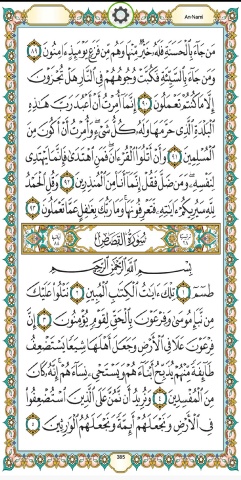 An-Naml
مَن جَآءَ بِٱلْحَسَنَةِ فَلَهُۥ خَيْرٌ مِّنْهَا وَهُم مِّن فَزَعٍ يَوْمَئِذٍ ءَامِنُونَ ٨٩
وَمَن جَآءَ بِٱلسَّيِّئَةِ فَكُبَّتْ وُجُوهُهُمْ فِى ٱلنَّارِ هَلْ تُجْزَوْنَ
إِلَّا مَا كُنتُمْ تَعْمَلُونَ ٩٠ إِنَّمَآ أُمِرْتُ أَنْ أَعْبُدَ رَبَّ هَٰذِهِ
ٱلْبَلْدَةِ ٱلَّذِى حَرَّمَهَا وَلَهُۥ كُلُّ شَىْءٍ وَأُمِرْتُ أَنْ أَكُونَ مِنَ
ٱلْمُسْلِمِينَ ٩١ وَأَنْ أَتْلُوَا۟ ٱلْقُرْءَانَ فَمَنِ ٱهْتَدَىٰ فَإِنَّمَا يَهْتَدِى
لِنَفْسِهِۦ وَمَن ضَلَّ فَقُلْ إِنَّمَآ أَنَا۠ مِنَ ٱلْمُنذِرِينَ ٩٢ وَقُلِ ٱلْحَمْدُ
لِلَّهِ سَيُرِيكُمْ ءَايَٰتِهِۦ فَتَعْرِفُونَهَا وَمَا رَبُّكَ بِغَٰفِلٍ عَمَّا تَعْمَلُونَ ٩٣
سُورَةُ القَصَصِ
بِسْمِ ٱللَّهِ ٱلرَّحْمَٰنِ ٱلرَّحِيمِ
طسٓمٓ ١ تِلْكَ ءَايَٰتُ ٱلْكِتَٰبِ ٱلْمُبِينِ ٢ نَتْلُوا۟ عَلَيْكَ
مِن نَّبَإِ مُوسَىٰ وَفِرْعَوْنَ بِٱلْحَقِّ لِقَوْمٍ يُؤْمِنُونَ ٣ إِنَّ
فِرْعَوْنَ عَلَا فِى ٱلْأَرْضِ وَجَعَلَ أَهْلَهَا شِيَعًا يَسْتَضْعِفُ
طَآئِفَةً مِّنْهُمْ يُذَبِّحُ أَبْنَآءَهُمْ وَيَسْتَحْىِۦ نِسَآءَهُمْ إِنَّهُۥ كَانَ
مِنَ ٱلْمُفْسِدِينَ ٤ وَنُرِيدُ أَن نَّمُنَّ عَلَى ٱلَّذِينَ ٱسْتُضْعِفُوا۟
فِى ٱلْأَرْضِ وَنَجْعَلَهُمْ أَئِمَّةً وَنَجْعَلَهُمُ ٱلْوَٰرِثِينَ ٥
385